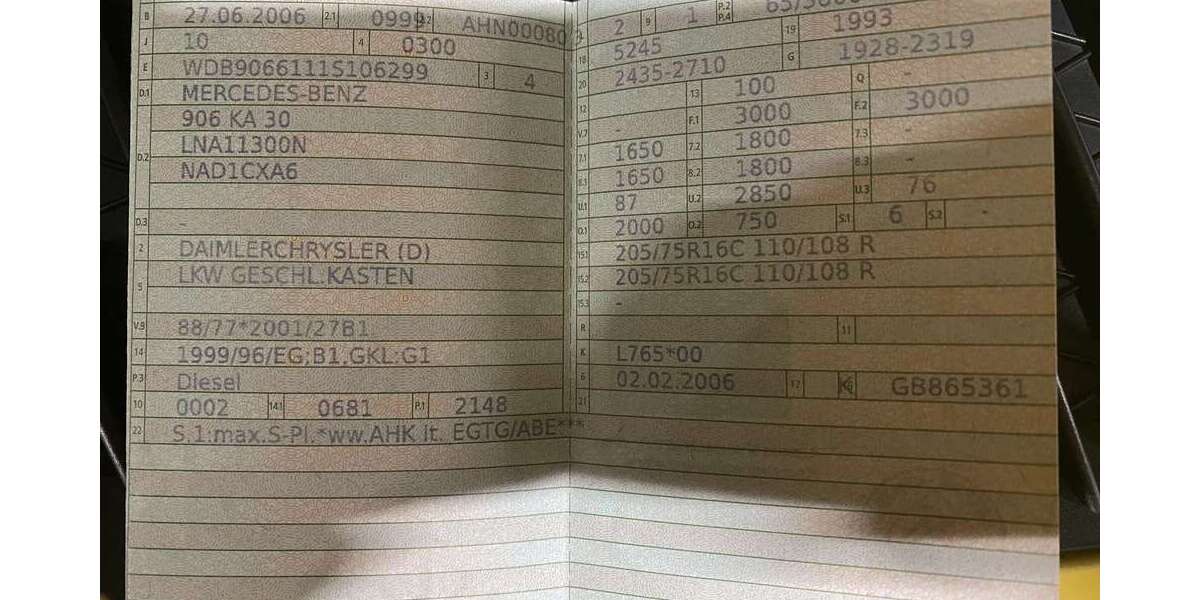 B 27.06.2006 2.1 0999 2.2 AHN00080
J 10 4 0300
E WDB9066111S106299 3 4
D.1 MERCEDES-BENZ
906 KA 30
D.2 LNA11300N
NAD1CXA6
D.3 -
2 DAIMLERCHRYSLER (D)
5 LKW GESCHL.KASTEN
V.9 88/77*2001/27B1
14 1999/96/EG;B1,GKL:G1
P.3 Diesel
10 0002 14.1 0681 P.1 2148
22 S.1:max.S-Pl.*ww.AHK lt. EGTG/ABE***
2 9 1 P.2 P.4
18 5245 19 1993
20 2435-2710 G 1928-2319
12 13 100 Q -
V.7 - F.1 3000 F.2 3000
7.1 1650 7.2 1800 7.3 -
8.1 1650 8.2 1800 8.3 -
U.1 87 U.2 2850 U.3 76
O.1 2000 O.2 750 S.1 6 S.2 -
15.1 205/75R16C 110/108 R
15.2 205/75R16C 110/108 R
15.3 -
R 11
K L765*00
6 02.02.2006 17 16 GB865361
21